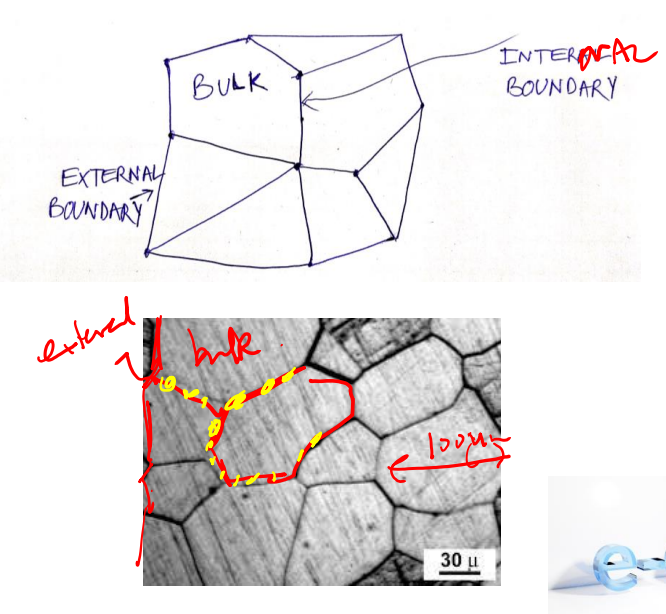 BULK
INTERNAL
BOUNDARY
EXTERNAL
BOUNDARY
external
bulk
100um
30 μ
e